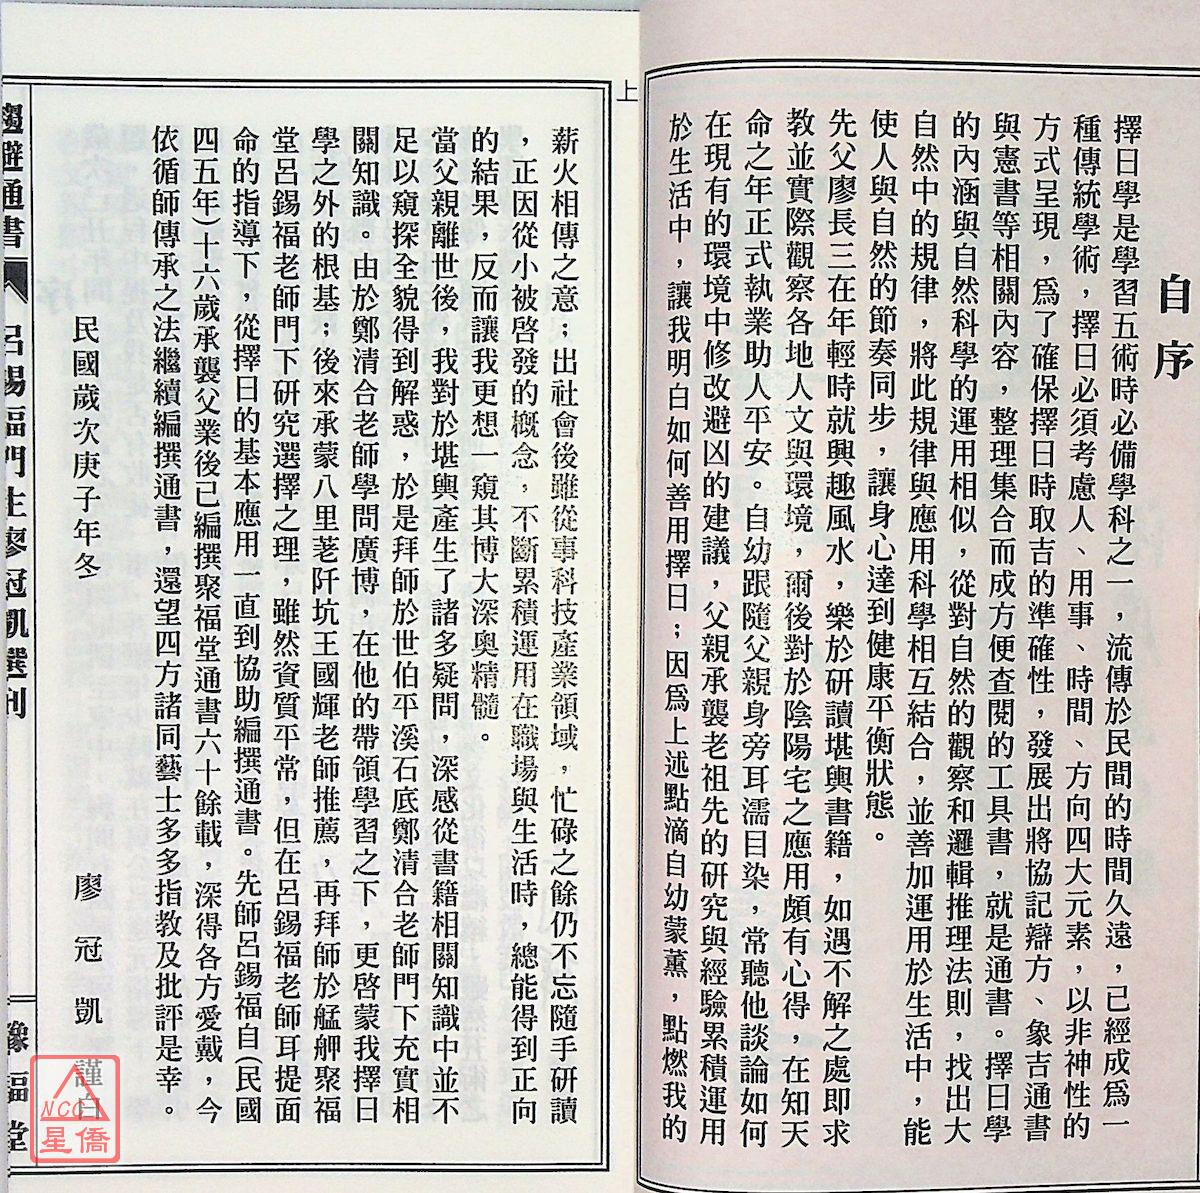 自序
擇日學是學習五術時必備學科之一，流傳於民間的時間久遠，已經成爲一
種傳統學術，擇日必須考慮人、用事、時間、方向四大元素，以非神性的
方式呈現，爲了確保擇日時取吉的準確性，發展出將協記辯方、象吉通書
與憲書等相關內容，整理集合而成方便查閱的工具書，就是通書。擇日學
的內涵與自然科學的運用相似，從對自然的觀察和邏輯推理法則，找出大
自然中的規律，將此規律與應用科學相互結合，並善加運用於生活中，能
使人與自然的節奏同步，讓身心達到健康平衡狀態。
先父廖長三在年輕時就興趣風水，樂於研讀堪輿書籍，如遇不解之處即求
教並實際觀察各地人文與環境，爾後對於陰陽宅之應用頗有心得，在知天
命之年正式執業助人平安。自幼跟隨父親身旁耳濡目染，常聽他談論如何
在現有的環境中修改避凶的建議，父親承襲老祖先的研究與經驗累積運用
於生活中，讓我明白如何善用擇日；因爲上述點滴自幼蒙薰，點燃我的
上
薪火相傳之意；出社會後雖從事科技產業領域，忙碌之餘仍不忘隨手研讀
，正因從小被啓發的概念，不斷累積運用在職場與生活時，總能得到正向
的結果，反而讓我更想一窺其博大深奧精髓。
當父親離世後，我對於堪輿產生了諸多疑問，深感從書籍相關知識中並不
足以窺探全貌得到解惑，於是拜師於世伯平溪石底鄭清合老師門下充實相
關知識。由於鄭清合老師學問廣博，在他的帶領學習之下，更啓蒙我擇日
學之外的根基；後來承蒙八里荖阡坑王國輝老師推薦，再拜師於艋舺聚福
堂呂錫福老師門下研究選擇之理，雖然資質平常，但在呂錫福老師耳提面
命的指導下，從擇日的基本應用一直到協助編撰通書。先師呂錫福自(民國
四五年)十六歲承襲父業後已編撰聚福堂通書六十餘載，深得各方愛戴，今
依循師傳承之法繼續編撰通書，還望四方諸同藝士多多指教及批評是幸。
民國歲次庚子年冬 廖冠凱 謹白
趨避通書 呂錫福門生廖冠凱撰刊 豫福堂
NCC
星僑